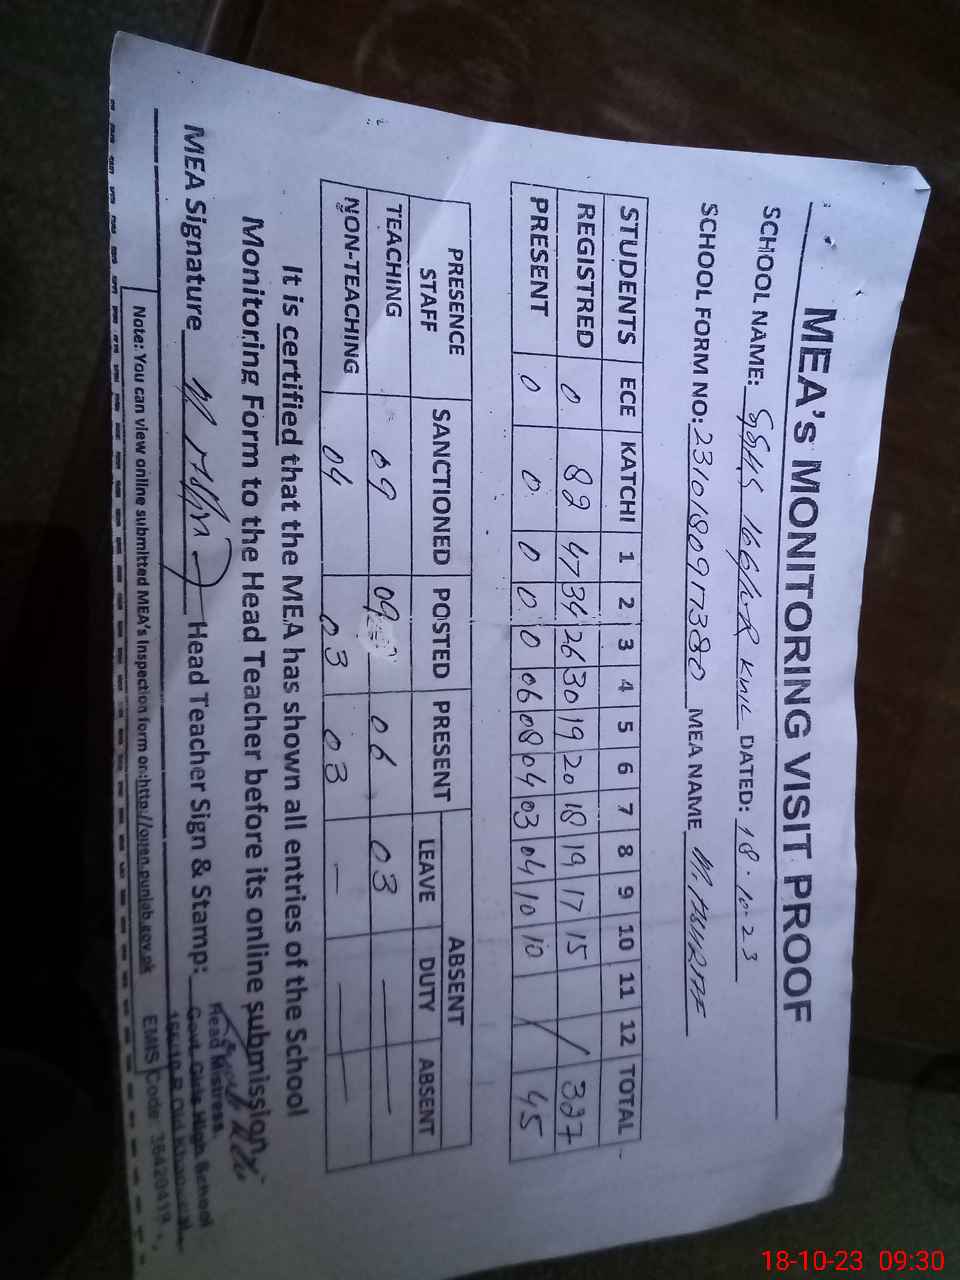 MEA's MONITORING VISIT PROOF
SCHOOL NAME: GGHS 166/10R KWL DATED: 18-10-23
SCHOOL FORM NO: 2310180917380 MEA NAME M.
STUDENTS ECE KATCHI 1 2 3 4 5 6 7 8 9 10 11 12 TOTAL
REGISTRED 0 82 47 34 26 30 19 20 18 19 17 15 / 327
PRESENT 0 0 0 0 0 06 08 04 03 04 10 10 / 45
PRESENCE STAFF SANCTIONED POSTED PRESENT ABSENT
LEAVE DUTY ABSENT
TEACHING 09 09 06 03 — —
NON-TEACHING 04 03 03 — — —
It is certified that the MEA has shown all entries of the School
Monitoring Form to the Head Teacher before its online submission
MEA Signature Head Teacher Sign & Stamp:
Head Mistress
Govt. Girls High School
EMIS Code 36420419
Note: You can view online submitted MEA's Inspection form on:http://open.punjab.gov.pk
18-10-23 09:30